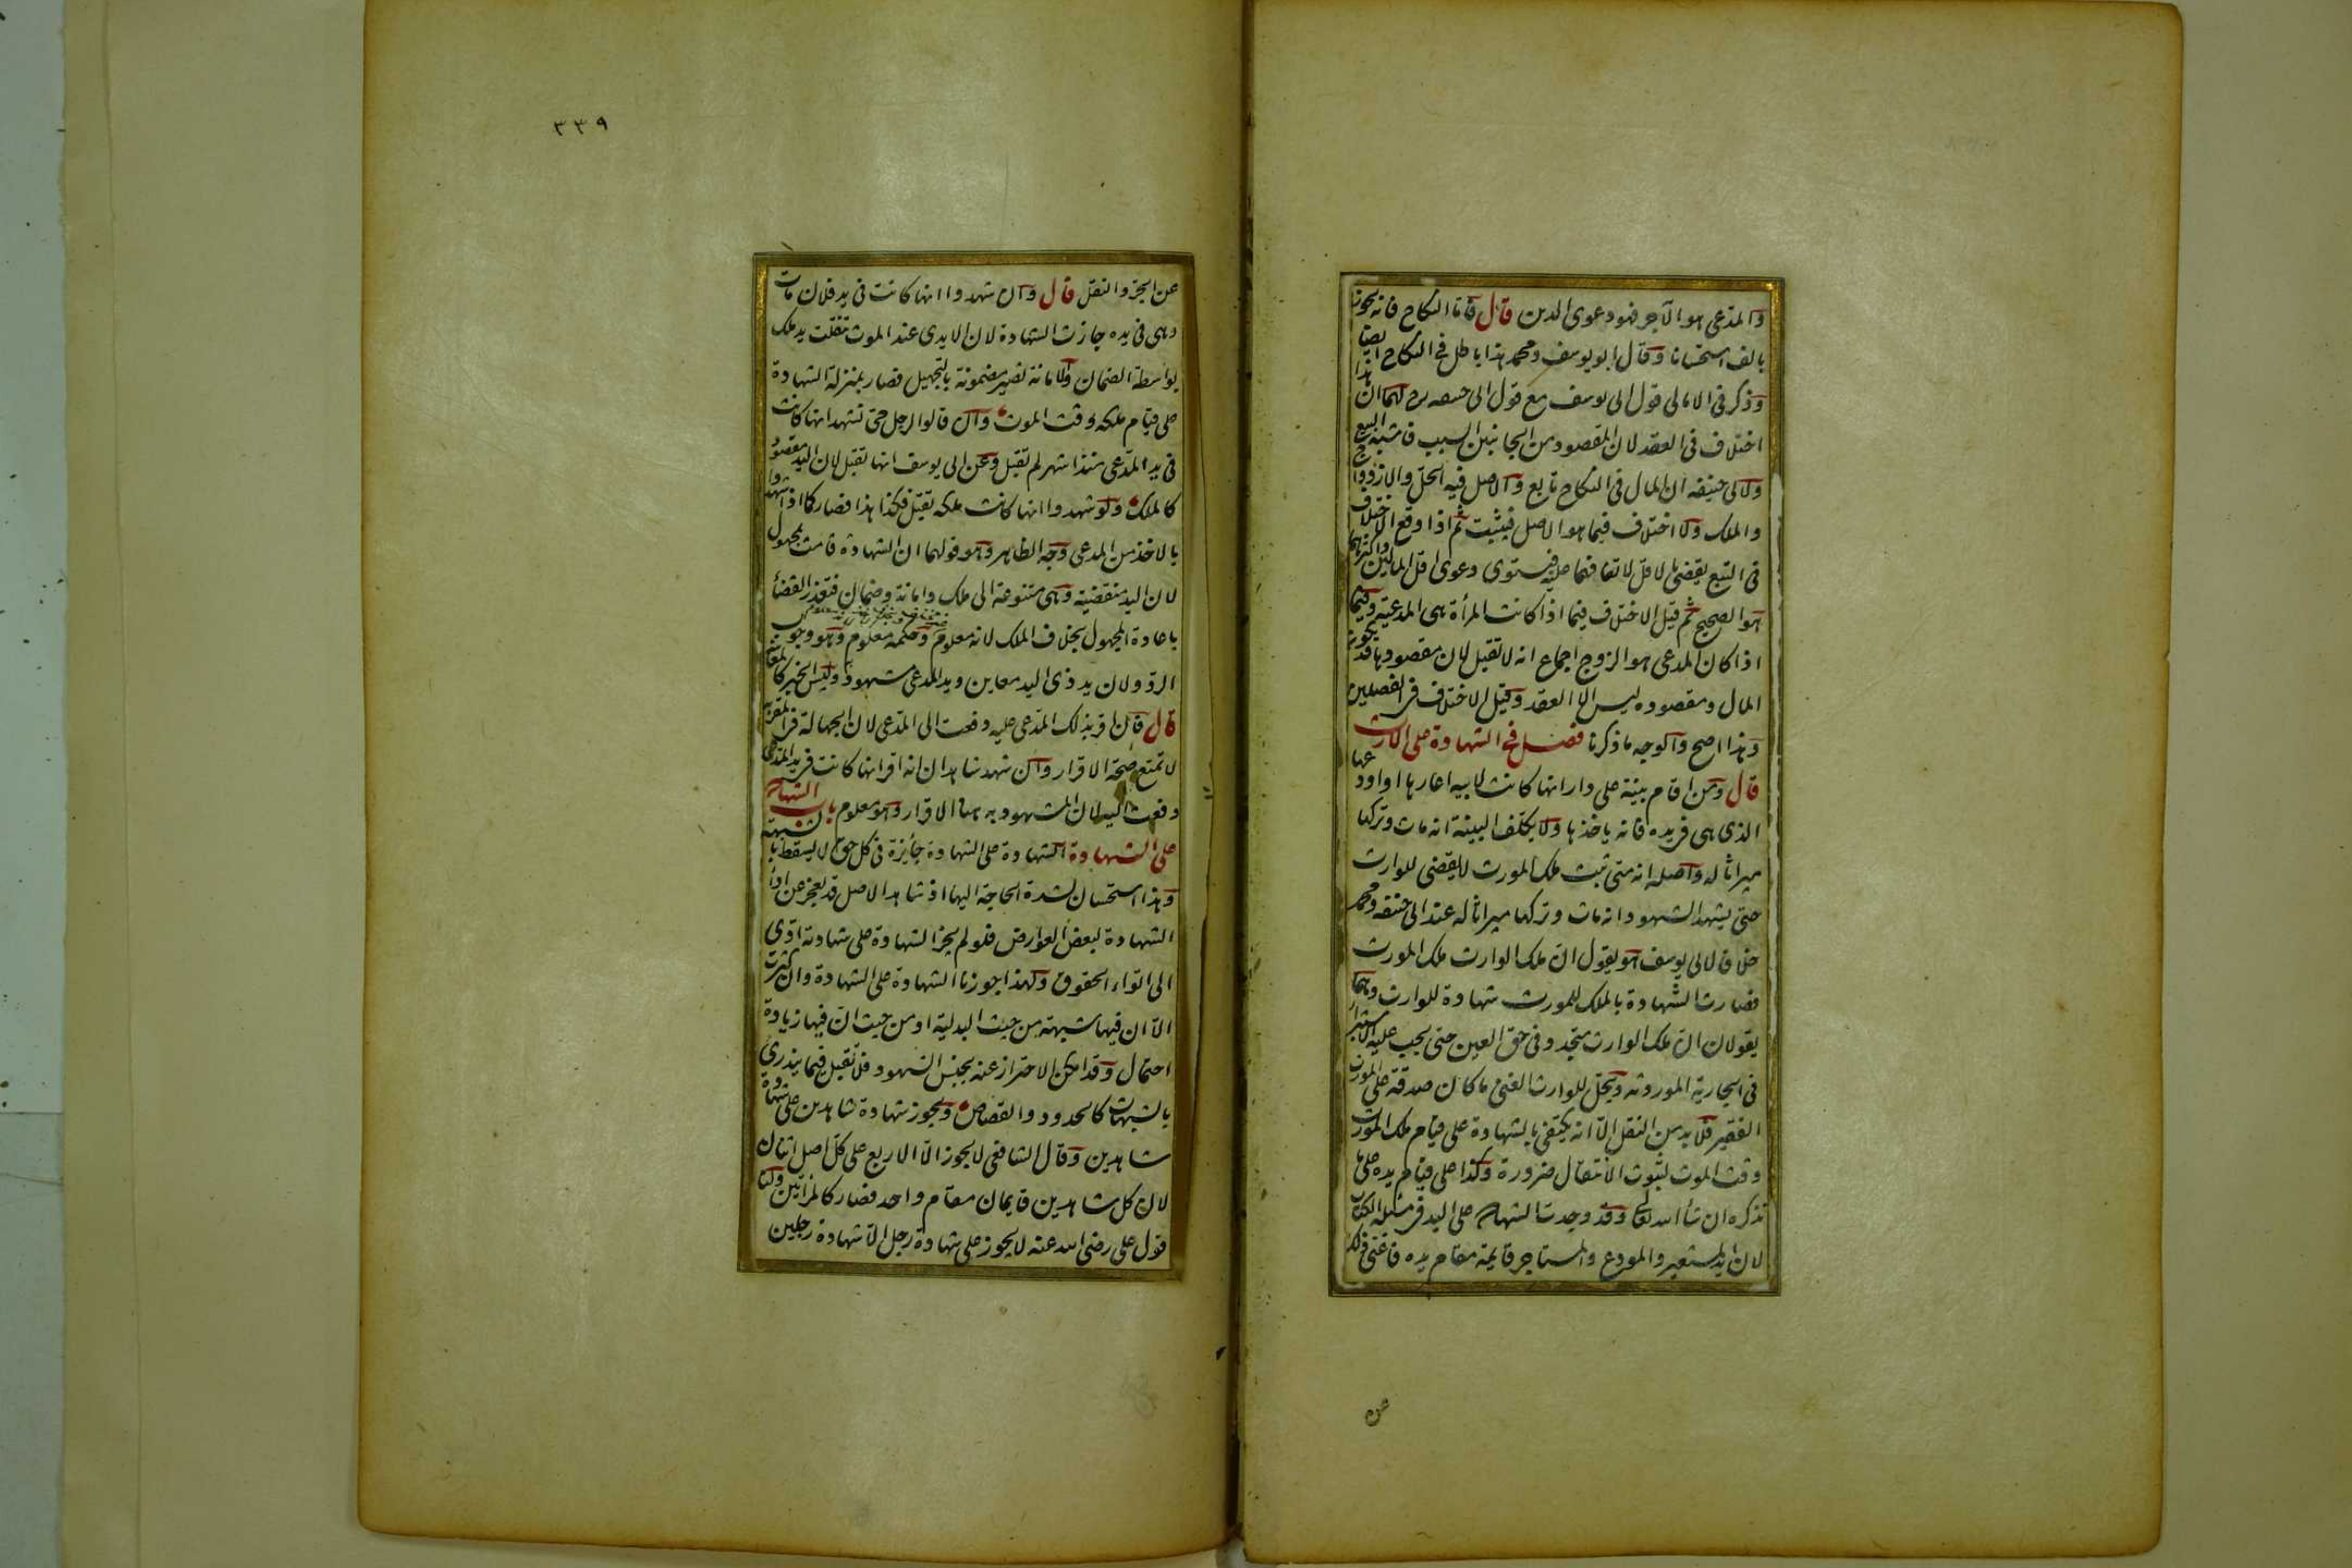 والمدعي هو الآجر فهو دعوى الدين قال فاما النكاح فانه يجوز
بالف استحسانا وقال ابو يوسف ومحمد هذا باطل في النكاح ايضا
وذكر في الامالي قول ابي يوسف مع قول ابي حنيفه رح لهما ان هذا
اختلاف في العقد لان المقصود من الجانبين السبب فاشبه البيع
ولابي حنيفه ان المال في النكاح تابع والاصل فيه الحل والازدواج
والملك ولا اختلاف فيما هو الاصل فيثبت ثم اذا وقع الاختلاف
في التبع يقضى بالاقل لاتفاقهما عليه فيستوى دعوى اقل المالين واكثرهما
هو الصحيح ثم قيل الاختلاف فيما اذا كانت المرأة هي المدعية وفيما
اذا كان المدعي هو الزوج اجماع انه لا تقبل لان مقصودها قد يكون
المال ومقصوده ليس الا العقد وقيل الاختلاف في الفصلين
وهذا اصح والوجه ما ذكرنا فصل في الشهادة على الارث
قال ومن اقام بينة على دار انها كانت لابيه اعارها او اودعها
الذي هي في يده فانه ياخذها ولا يكلف البينة انه مات وتركها
ميراثا له واصله انه متى ثبت ملك المورث لا يقضى للوارث
حتى يشهد الشهود انه مات وتركها ميراثا له عند ابي حنيفه ومحمد
خلافا لابي يوسف هو يقول ان ملك الوارث ملك المورث
فصارت الشهادة بالملك للمورث شهادة للوارث وهما
يقولان ان ملك الوارث متجدد في حق العين حتى يجب عليه الاستبراء
في الجارية الموروثه ويحل للوارث الغني ما كان صدقة على المورث
الفقير فلا بد من النقل الا انه يكتفى بالشهادة على قيام ملك المورث
وقت الموت لثبوت الانتقال ضرورة وكذا على قيام يده على ما
نذكره ان شأ الله تعا وقد وجدت الشهادة على اليد في مسئلة الكتاب
لان يد المستعير والمودع والمستاجر قايمة مقام يده فاغنى ذلك
ص
٣٣٩
عن الجر والنقل قال وان شهدوا انها كانت في يد فلان مات
وهي في يده جازت الشهادة لان الايدي عند الموت تنقلب يد ملك
بواسطة الضمان والامانة تصير مضمونة بالتجهيل فصار بمنزلة الشهادة
على قيام ملكه وقت الموت وان قالوا لرجل حي نشهد انها كانت
في يد المدعي منذ اشهر لم تقبل وعن ابي يوسف انها تقبل لان اليد مقصود
كالملك ولو شهدوا انها كانت ملكه تقبل فكذا هذا فصار كما اذا شهدوا
بالاخذ من المدعي وجه الظاهر وهو قولهما ان الشهادة قامت بمجهول
لان اليد منقضية وهي متنوعة الى ملك وامانة وضمان فتعذر القضأ
باعادة المجهول بخلاف الملك لانه معلوم وحكمه معلوم وهو وجوب
الرد ولان يد ذي اليد معاين ويد المدعي مشهود وليس الخبر كالمعاينة
قال فان اقر بذلك المدعي عليه دفعت الى المدعي لان الجهالة في المقر به
لا تمنع صحة الاقرار وان شهد شاهدان انه اقر انها كانت في يد المدعي
دفعت اليه لان المشهود به هنا الاقرار وهو معلوم باب الشهادة
على الشهادة الشهادة على الشهادة جائزة في كل حق لا يسقط بالشبهة
وهذا استحسان لشدة الحاجة اليها اذ شاهد الاصل قد يعجز عن ادأ
الشهادة لبعض العوارض فلو لم يجز الشهادة على شهادته ادى
الى اتواء الحقوق ولهذا جوزنا الشهادة على الشهادة وان كثرت
الا ان فيها شبهة من حيث البدلية او من حيث ان فيها زيادة
احتمال وقد امكن الاحتراز عنه بجنس الشهود فلا تقبل فيما يندرئ
بالشبهات كالحدود والقصاص ويجوز شهادة شاهدين على شهادة
شاهدين وقال الشافعي لا يجوز الا الاربع على كل اصل اثنان
لان كل شاهدين قايمان مقام واحد فصار كالمرأتين ولنا
قول علي رضي الله عنه لا يجوز على شهادة رجل الا شهادة رجلين